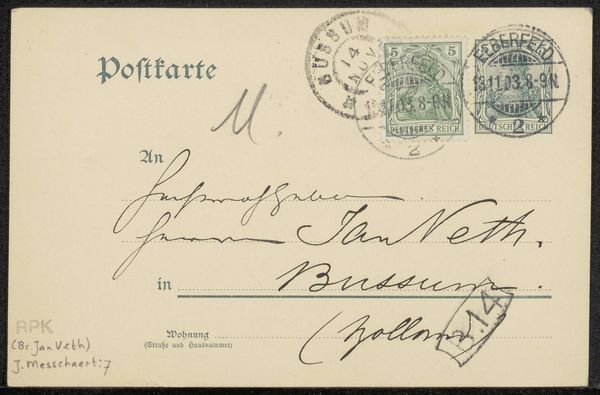 Postkarte
BUSSUM
14
NOV
5 5
DEUTSCHES REICH
ELBERFELD
13.11.03.8-9N
2
ELBERFELD
13.11.03.8-9N
DEUTSCHES REICH
2
M.
An
Herrn Jan Veth.
in Bussum.
(Holland)
14
Wohnung
(Straße und Hausnummer)
RPK
(Br. Jan Veth)
J. Messchaert: 7